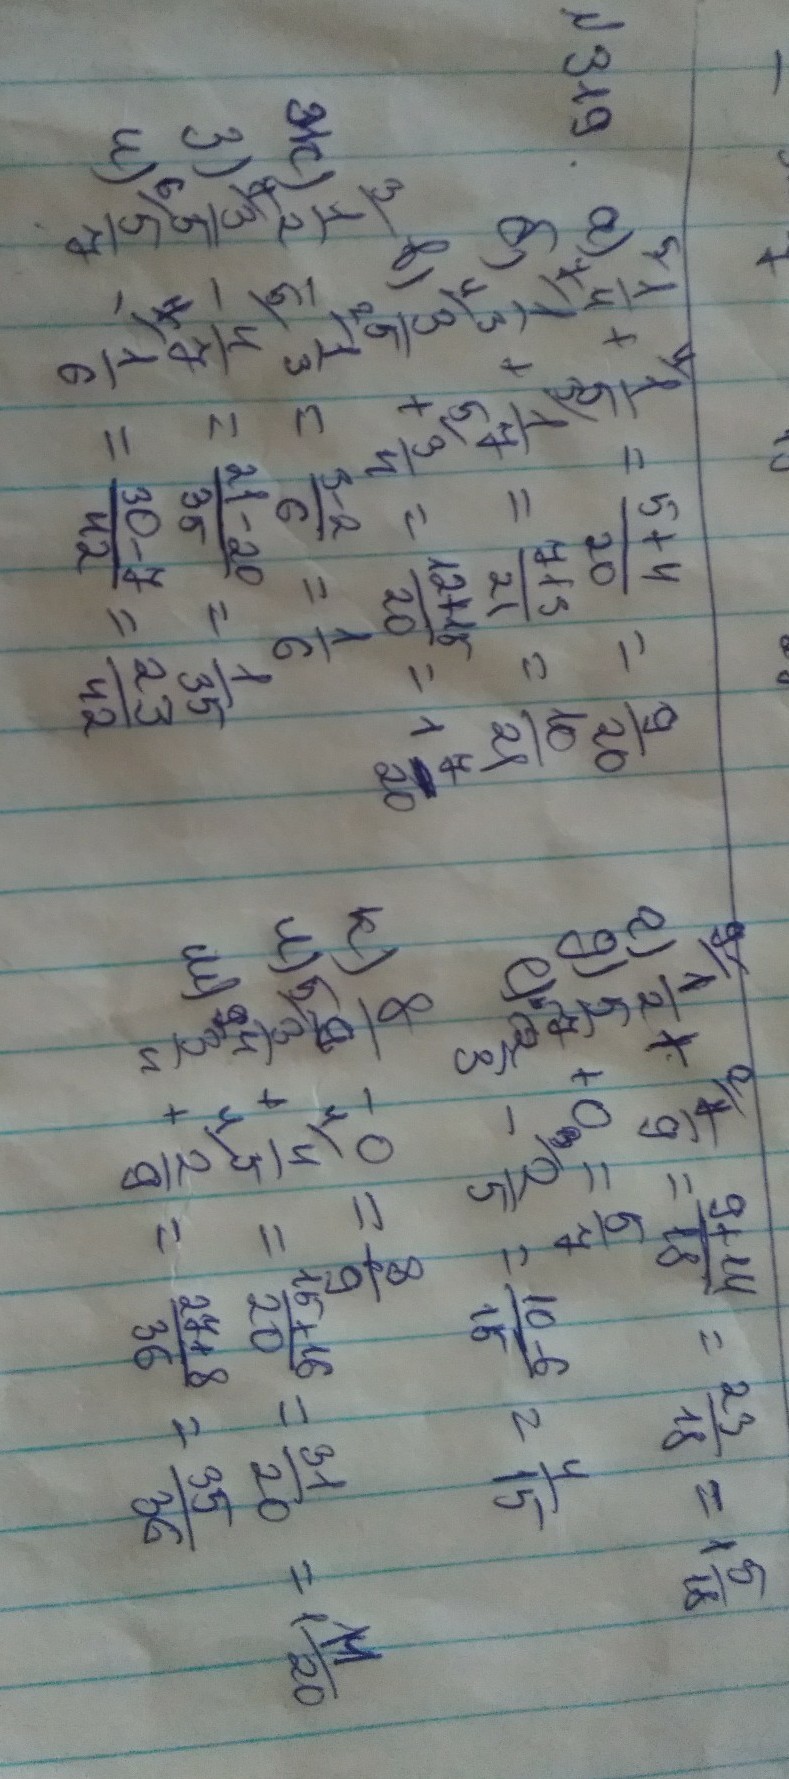 №319.
а) 1/4 + 1/5 = 5+4/20 = 9/20
б) 1/3 + 1/7 = 7+3/21 = 10/21
в) 3/5 + 3/4 = 12+15/20 = 1 7/20
ж) 1/2 - 1/3 = 3-2/6 = 1/6
з) 3/5 - 4/7 = 21-20/35 = 1/35
и) 5/7 - 1/6 = 30-7/42 = 23/42
г) 1/2 + 7/9 = 9+14/18 = 23/18 = 1 5/18
д) 5/7 + 0 = 5/7
е) 2/3 - 2/5 = 10-6/15 = 4/15
к) 8/9 - 0 = 8/9
л) 3/4 + 4/5 = 15+16/20 = 31/20 = 1 11/20
м) 3/4 + 2/9 = 27+8/36 = 35/36